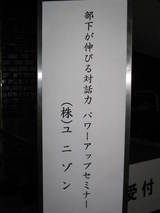 部下が伸びる対話力 パワーアップセミナー
(株)ユニゾン
受付